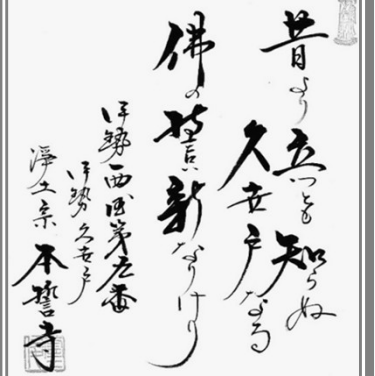 昔より立つとも知らぬ
久世戸なる
佛の誓い新なりけり
伊勢西国第番
伊勢久世戸
浄土宗 本誓寺